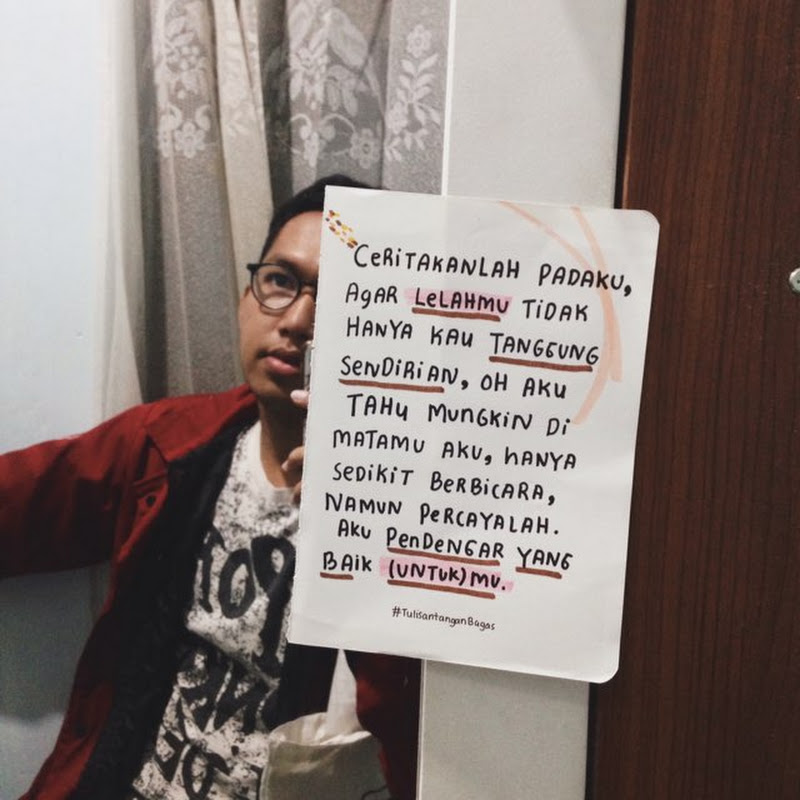 CERITAKANLAH PADAKU,
AgAR LELAHMU TIDAK
HANYA KAU TANGGUNG
SENDIRIAN, OH AKU
TAHU MUNGKIN DI
MATAMU AKU, HANYA
SEDIKIT BERBICARA,
NAMUN PERCAYALAH.
AKU PENDENGAR YANG
BAIK (UNTUK)MU.
#TulisantanganBagas